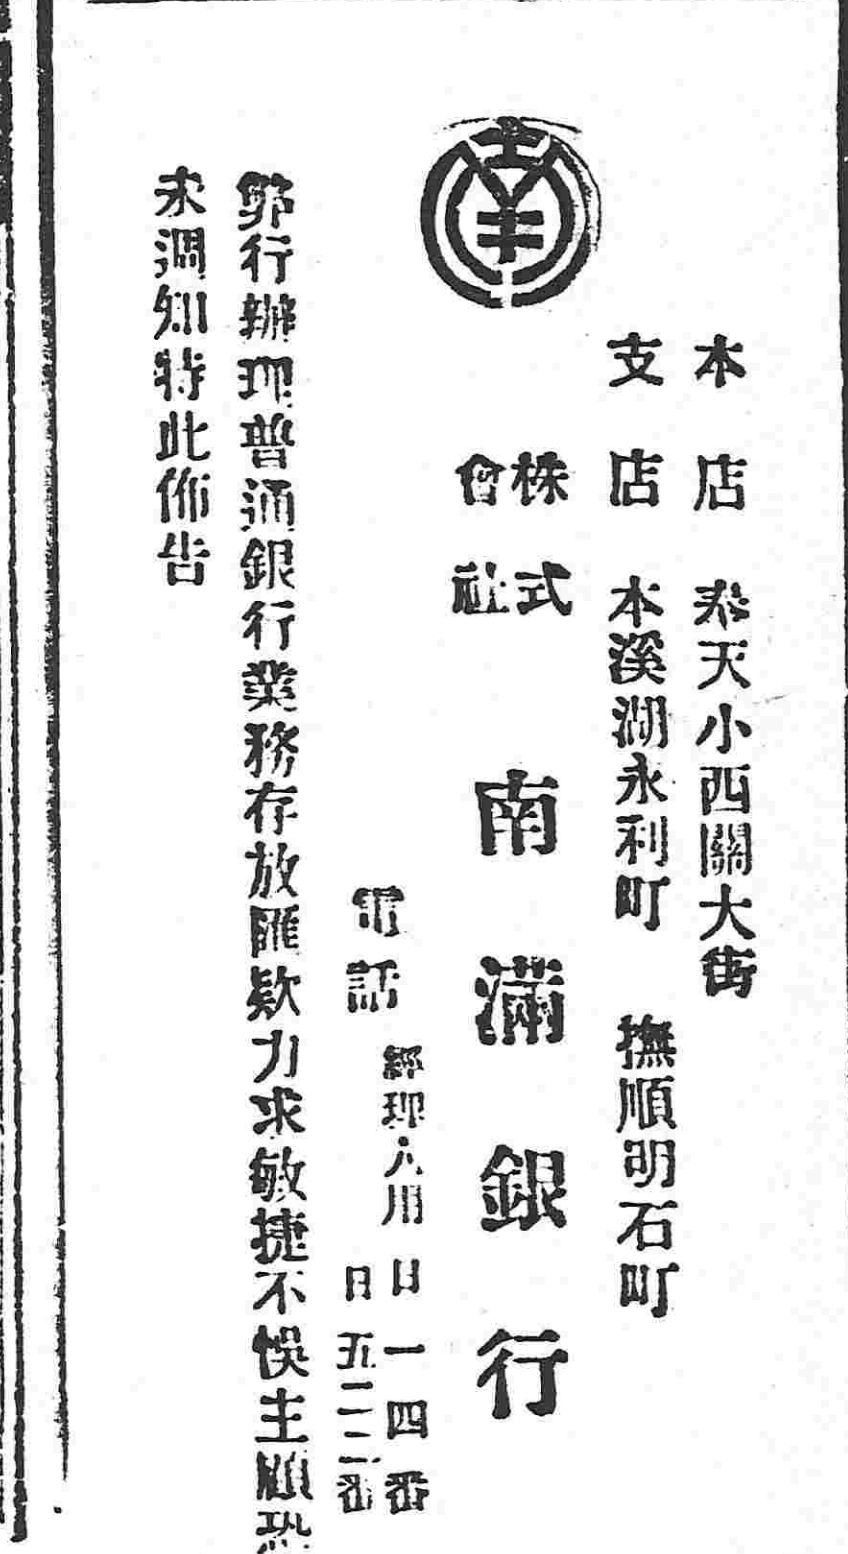 本店 奉天小西關大街
支店 本溪湖永利町 撫順明石町
株式會社 南滿銀行
電話 經理人用 日一四番
日五二二番
敝行辦理普通銀行業務存放匯欵力求敏捷不悞主顧恐
未週知特此佈告